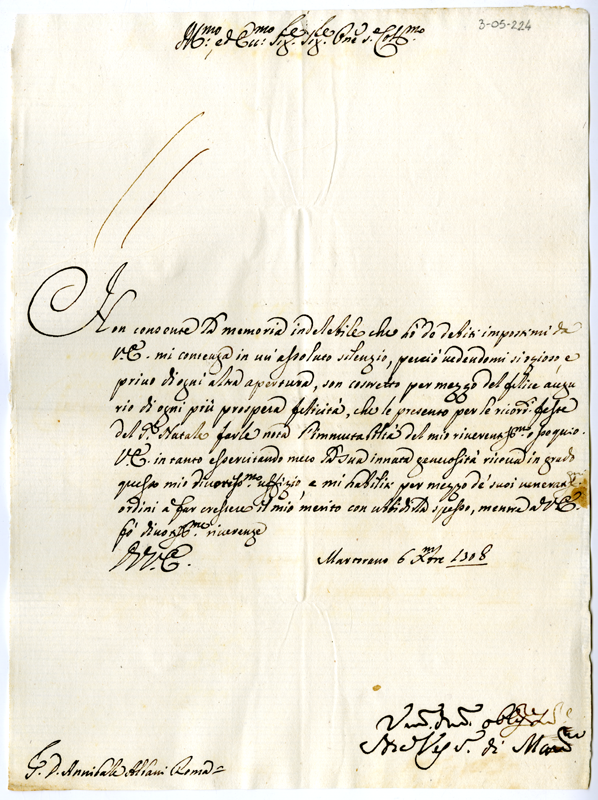 3-05-224
Ill.mo ed Ecc.mo Sig.re Sig.re P.ne e Coll.mo
Non consente la memoria indelebile che hò de debiti impostimi da
V.E. mi contenga in un assoluto silenzio, perciò vedendomi sì ozioso e
privo di ogni altra apertura, son costretto per mezzo del felice augu
rio di ogni più prospera felicità, che le presento per le ricorr.ti feste
del S. Natale farle nota l'immutabilità del mio riverentiss.mo ossequio.
V.E. in tanto essercitando meco la sua innata generosità riceva in grado
questo mio divotiss.mo uffizio, e mi habiliti per mezzo de' suoi venerat.mi
ordini à far crescere il mio merito con ubbidirla spesso, mentre à V.E.
fò divotiss.me riverenze
D.V.E. Martorano 6 Xbre 1708
obblig.mo
Vesc. di Mart.no
S. D. Annibale Albani Roma